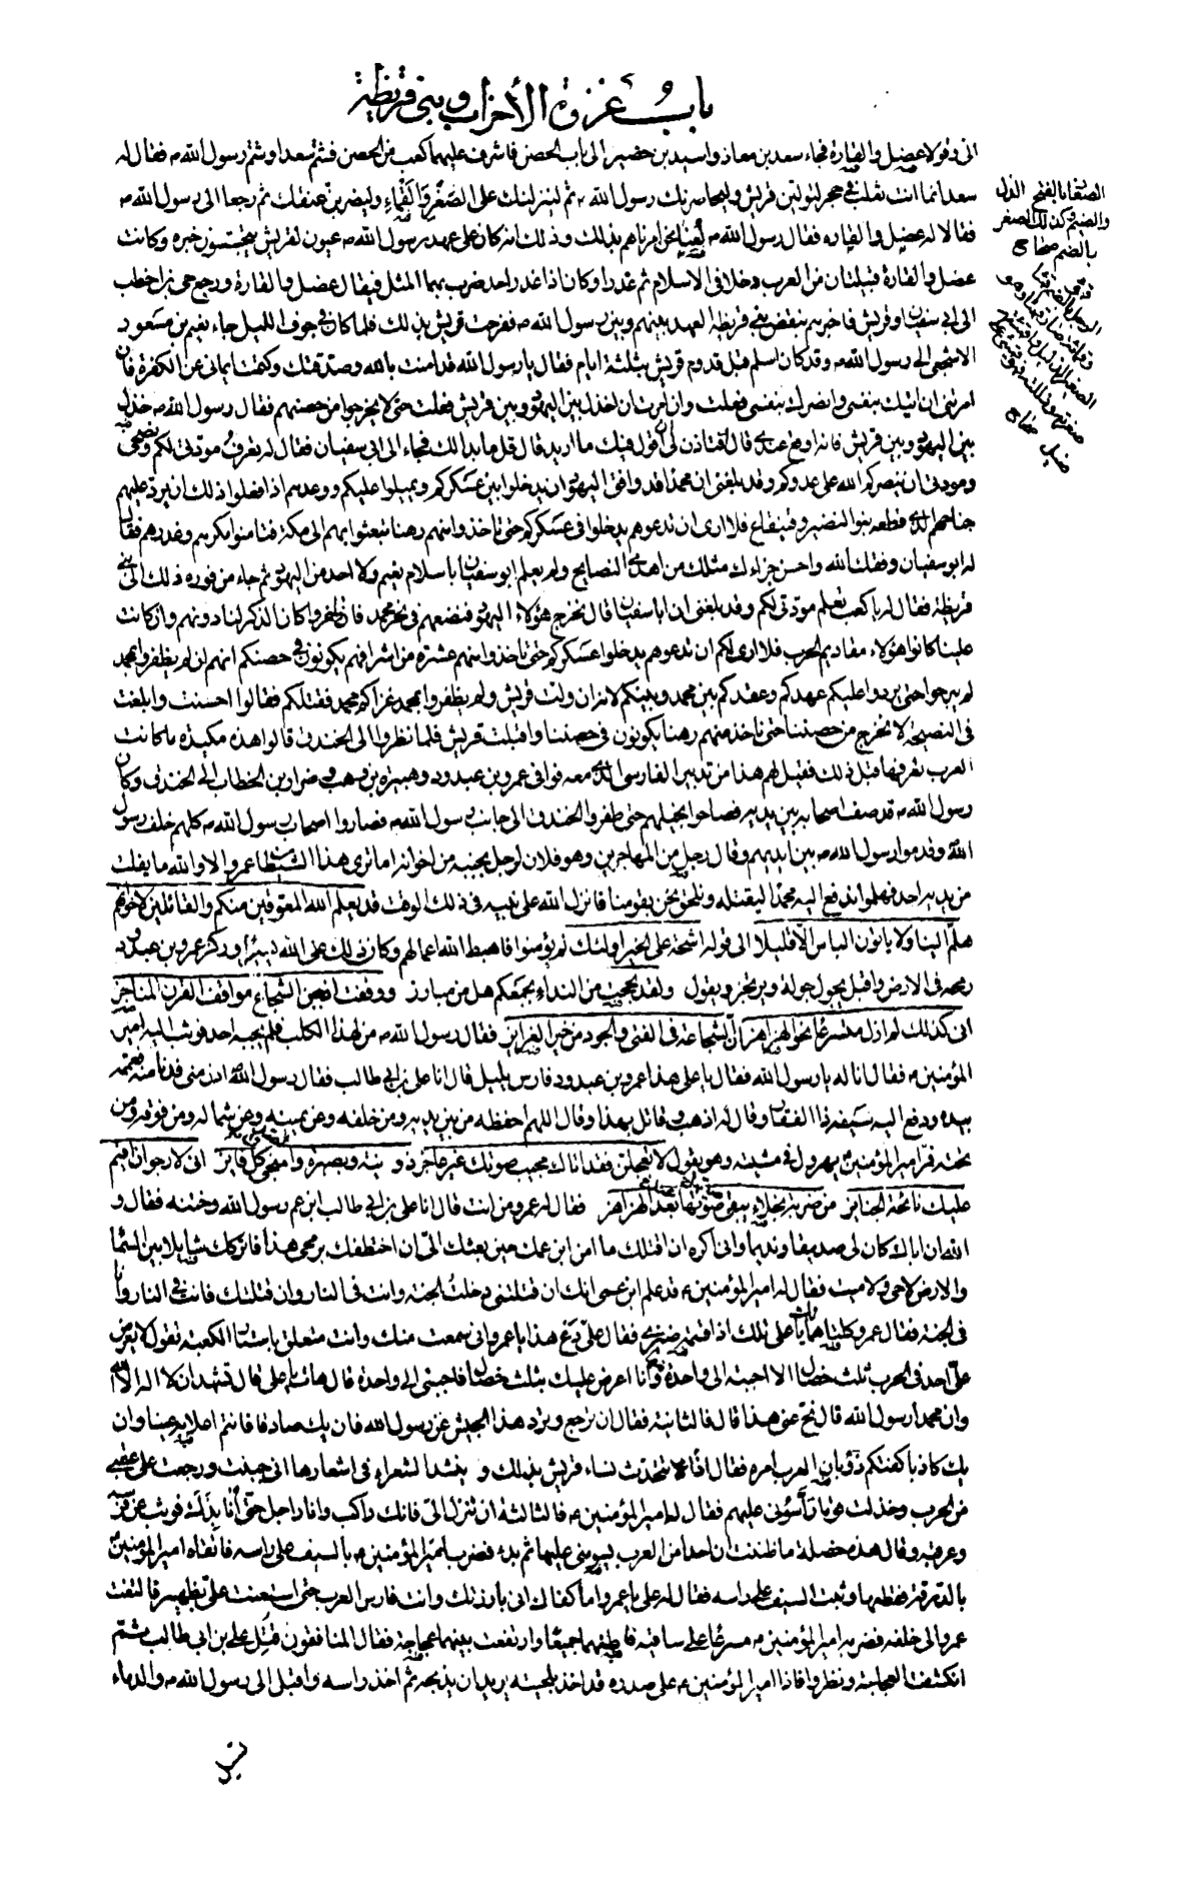 باب غزوة الأحزاب وبني قريظة
اتى ذئولا عضل والقارة فجاء سعد بن معاذ واسيد بن حضير الى باب الحصن فاشرف عليهما كعب من الحصن فشتم سعدا وشتم رسول الله ص فقال له
سعد انما انت ثعلب في حجر لتولين قريش وليحاصرنك رسول الله ص ثم لينزلنك على الصغر والقماء وليضربن عنقك ثم رجعا الى رسول الله ص
فقالا له عضل والقاره فقال رسول الله ص لعنا نحن امرناهم بذلك وذلك انه كان على عهد رسول الله ص عيون لقريش يتجسسون خبره وكانت
عضل والقارة قبيلتان من العرب دخلا في الاسلام ثم غدرا وكان اذا غدر احد ضرب بهما المثل فيقال عضل والقارة ورجع حي بن اخطب
الى ابي سفيان وقريش فاخبرهم بنقض بني قريظة العهد بينهم وبين رسول الله ص ففرحت قريش بذلك فلما كان في جوف الليل جاء نعيم بن مسعود
الاشجعي الى رسول الله ص وقد كان اسلم قبل قدوم قريش بثلثة ايام فقال يا رسول الله قد امنت بالله وصدقتك وكتمت ايماني عن الكفرة فان
امرتني ان اتيك بنفسي وانصرك بنفسي فعلت وان امرت ان اخذل بين اليهود وبين قريش فعلت حتى لا يخرجوا من حصنهم فقال رسول الله ص خذل
بين اليهود وبين قريش فانه اوقع عندي قال فتاذن لي ان اقول فيك ما اريد قال قل ما بدالك فجاء الى ابي سفيان فقال له تعرف مودتي لكم ونصحي
ومودتي ان ينصركم الله على عدوكم وقد بلغني ان محمدا قد وافق اليهود ان يدخلوا بين عسكركم ويميلوا عليكم ووعدهم اذا فعلوا ذلك ان يرد عليهم
جناحهم الذي قطعه بنو النضير وقينقاع فلا ارى ان تدعوهم يدخلوا في عسكركم حتى تاخذوا منهم رهنا تبعثوا بهم الى مكة فتامنوا مكرهم وغدرهم فقال
له ابو سفيان وفقك الله واحسن جزاءك مثلك من اهدى النصايح ولم يعلم ابو سفيان باسلام نعيم ولا احد من اليهود ثم جاء من فوره ذلك الى بني
قريظة فقال له يا كعب تعلم مودتي لكم وقد بلغني ان ابا سفيان قال نخرج هؤلاء اليهود فنضعهم في نحر محمد فان ظفروا كان الذكر لنا دونهم وان كانت
علينا كانوا هؤلاء مقاديم الحرب فلا ارى لكم ان تدعوهم يدخلوا عسكركم حتى تاخذوا منهم عشرة من اشرافهم يكونون في حصنكم انهم ان لم يظفروا بمحمد
لم يبرحوا حتى يردوا عليكم عهدكم وعقدكم بين محمد وبينكم لانه ان ولت قريش ولم يظفروا بمحمد غزاكم محمد فقتلكم فقالوا احسنت وابلغت
في النصيحة لا نخرج من حصننا حتى ناخذ منهم رهنا يكونون في حصننا واقبلت قريش فلما نظروا الى الخندق قالوا هذه مكيدة ما كانت
العرب تعرفها قبل ذلك فقيل لهم هذا من تدبير الفارسي الذي معه فوافى عمرو بن عبدود وهبيرة بن وهب وضرار بن الخطاب الى الخندق وكان
رسول الله ص قد صف اصحابه بين يديه فصاحوا بخيلهم حتى طفروا الخندق الى جانب رسول الله ص فصاروا اصحاب رسول الله ص كلهم خلف رسول
الله وقدموا رسول الله ص بين ايديهم وقال رجل من المهاجرين وهو فلان لرجل بجنبه من اخوانه اما ترى هذا الشيطان عمروا لا والله ما يفلت
من يديه احد فهلموا ندفع اليه محمدا ليقتله ونلحق نحن بقومنا فانزل الله على نبيه في ذلك الوقت قد يعلم الله المعوقين منكم والقائلين لاخوانهم
هلم الينا ولا ياتون الباس الا قليلا الى قوله اشحة على الخير اولئك لم يؤمنوا فاحبط الله اعمالهم وكان ذلك على الله يسيرا وركز عمرو بن عبدود
رمحه في الارض واقبل يجول جولة ويرتجز ويقول ولقد بححت من النداء بجمعكم هل من مبارز ووقفت اذ جبن الشجاع مواقف القرن المناجز
اني كذلك لم ازل متسرعا نحو الهزاهز ان الشجاعة في الفتى والجود من خير الغرايز فقال رسول الله ص من لهذا الكلب فلم يجبه احد فوثب اليه امير
المؤمنين ع فقال انا له يا رسول الله فقال يا علي هذا عمرو بن عبدود فارس يليل قال انا علي بن ابي طالب فقال رسول الله ص ادن مني فدنا منه فعممه
بيده ودفع اليه سيفه ذا الفقار وقال له اذهب وقاتل بهذا وقال اللهم احفظه من بين يديه ومن خلفه وعن يمينه وعن شماله ومن فوقه ومن
تحته فمر امير المؤمنين ع يهرول في مشيته وهو يقول لا تعجلن فقد اتاك مجيب صوتك غير عاجز ذو نية وبصيرة والمنجي كل فايز اني لارجو ان اقيم
عليك نائحة الجنايز من ضربة نجلاء يبقى صوتها بعد الهزاهز فقال له عمرو من انت قال انا علي بن ابي طالب ابن عم رسول الله وختنه فقال و
الله ان اباك كان لي صديقا ونديما واني اكره ان اقتلك ما امن ابن عمك حين بعثك الي ان اختطفك برمحي هذا فاتركك شايلا بين السماء
والارض لا حي ولا ميت فقال له امير المؤمنين ع قد علم ابن عمي انك ان قتلتني دخلت الجنة وانت في النار وان قتلتك فانت في النار وانا
في الجنة فقال عمرو كلتاهما لك يا علي تلك اذا قسمة ضيزى فقال علي دع هذا يا عمرو اني سمعت منك وانت متعلق باستار الكعبة تقول لا يعرض
علي احد في الحرب ثلث خصال الا اجبته الى واحدة وانا اعرض عليك بثلث خصال فاجبني الى واحدة قال هات يا علي قال تشهد ان لا اله الا الله
وان محمدا رسول الله قال نح عني هذا قال فالثانية فقال ان ترجع وترد هذا الجيش عن رسول الله فان يك صادقا فانتم اعلا به عينا وان
يك كاذبا كفتكم ذؤبان العرب امره فقال اذا لا تتحدث نساء قريش بذلك و ينشد الشعراء في اشعارها اني جبنت ورجعت على عقبي
من الحرب وخذلت قوما رأسوني عليهم فقال له امير المؤمنين ع فالثالثة ان تنزل الي فانك راكب وانا راجل حتى أنابذك فوثب عن فرسه
وعرقبه وقال هذه خصلة ما ظننت ان احدا من العرب يسومني عليها ثم بدء فضرب امير المؤمنين ع بالسيف على راسه فاتقاه امير المؤمنين ع
بالدرقة فقطعها وثبت السيف على راسه فقال له علي يا عمرو اما كفاك اني بارزتك وانت فارس العرب حتى استعنت علي بظهير فالتفت
عمرو الى خلفه فضربه امير المؤمنين ع مسرعا على ساقيه فاطنهما جميعا وارتفعت بينهما عجاجة فقال المنافقون قتل علي بن ابي طالب ثم
انكشفت العجاجة ونظروا فاذا امير المؤمنين ع على صدره قد اخذ بلحيته يريد ان يذبحه ثم اخذ راسه واقبل الى رسول الله ص والدماء
الصغار بالفتح الذل
والضيم وكذلك الصغر
بالضم صحاح